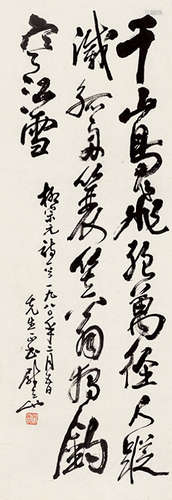 千山鳥飛絕萬徑人蹤
滅孤舟蓑笠翁獨釣
寒江雪
柳宗元詩 一九八〇年二月 日
先生